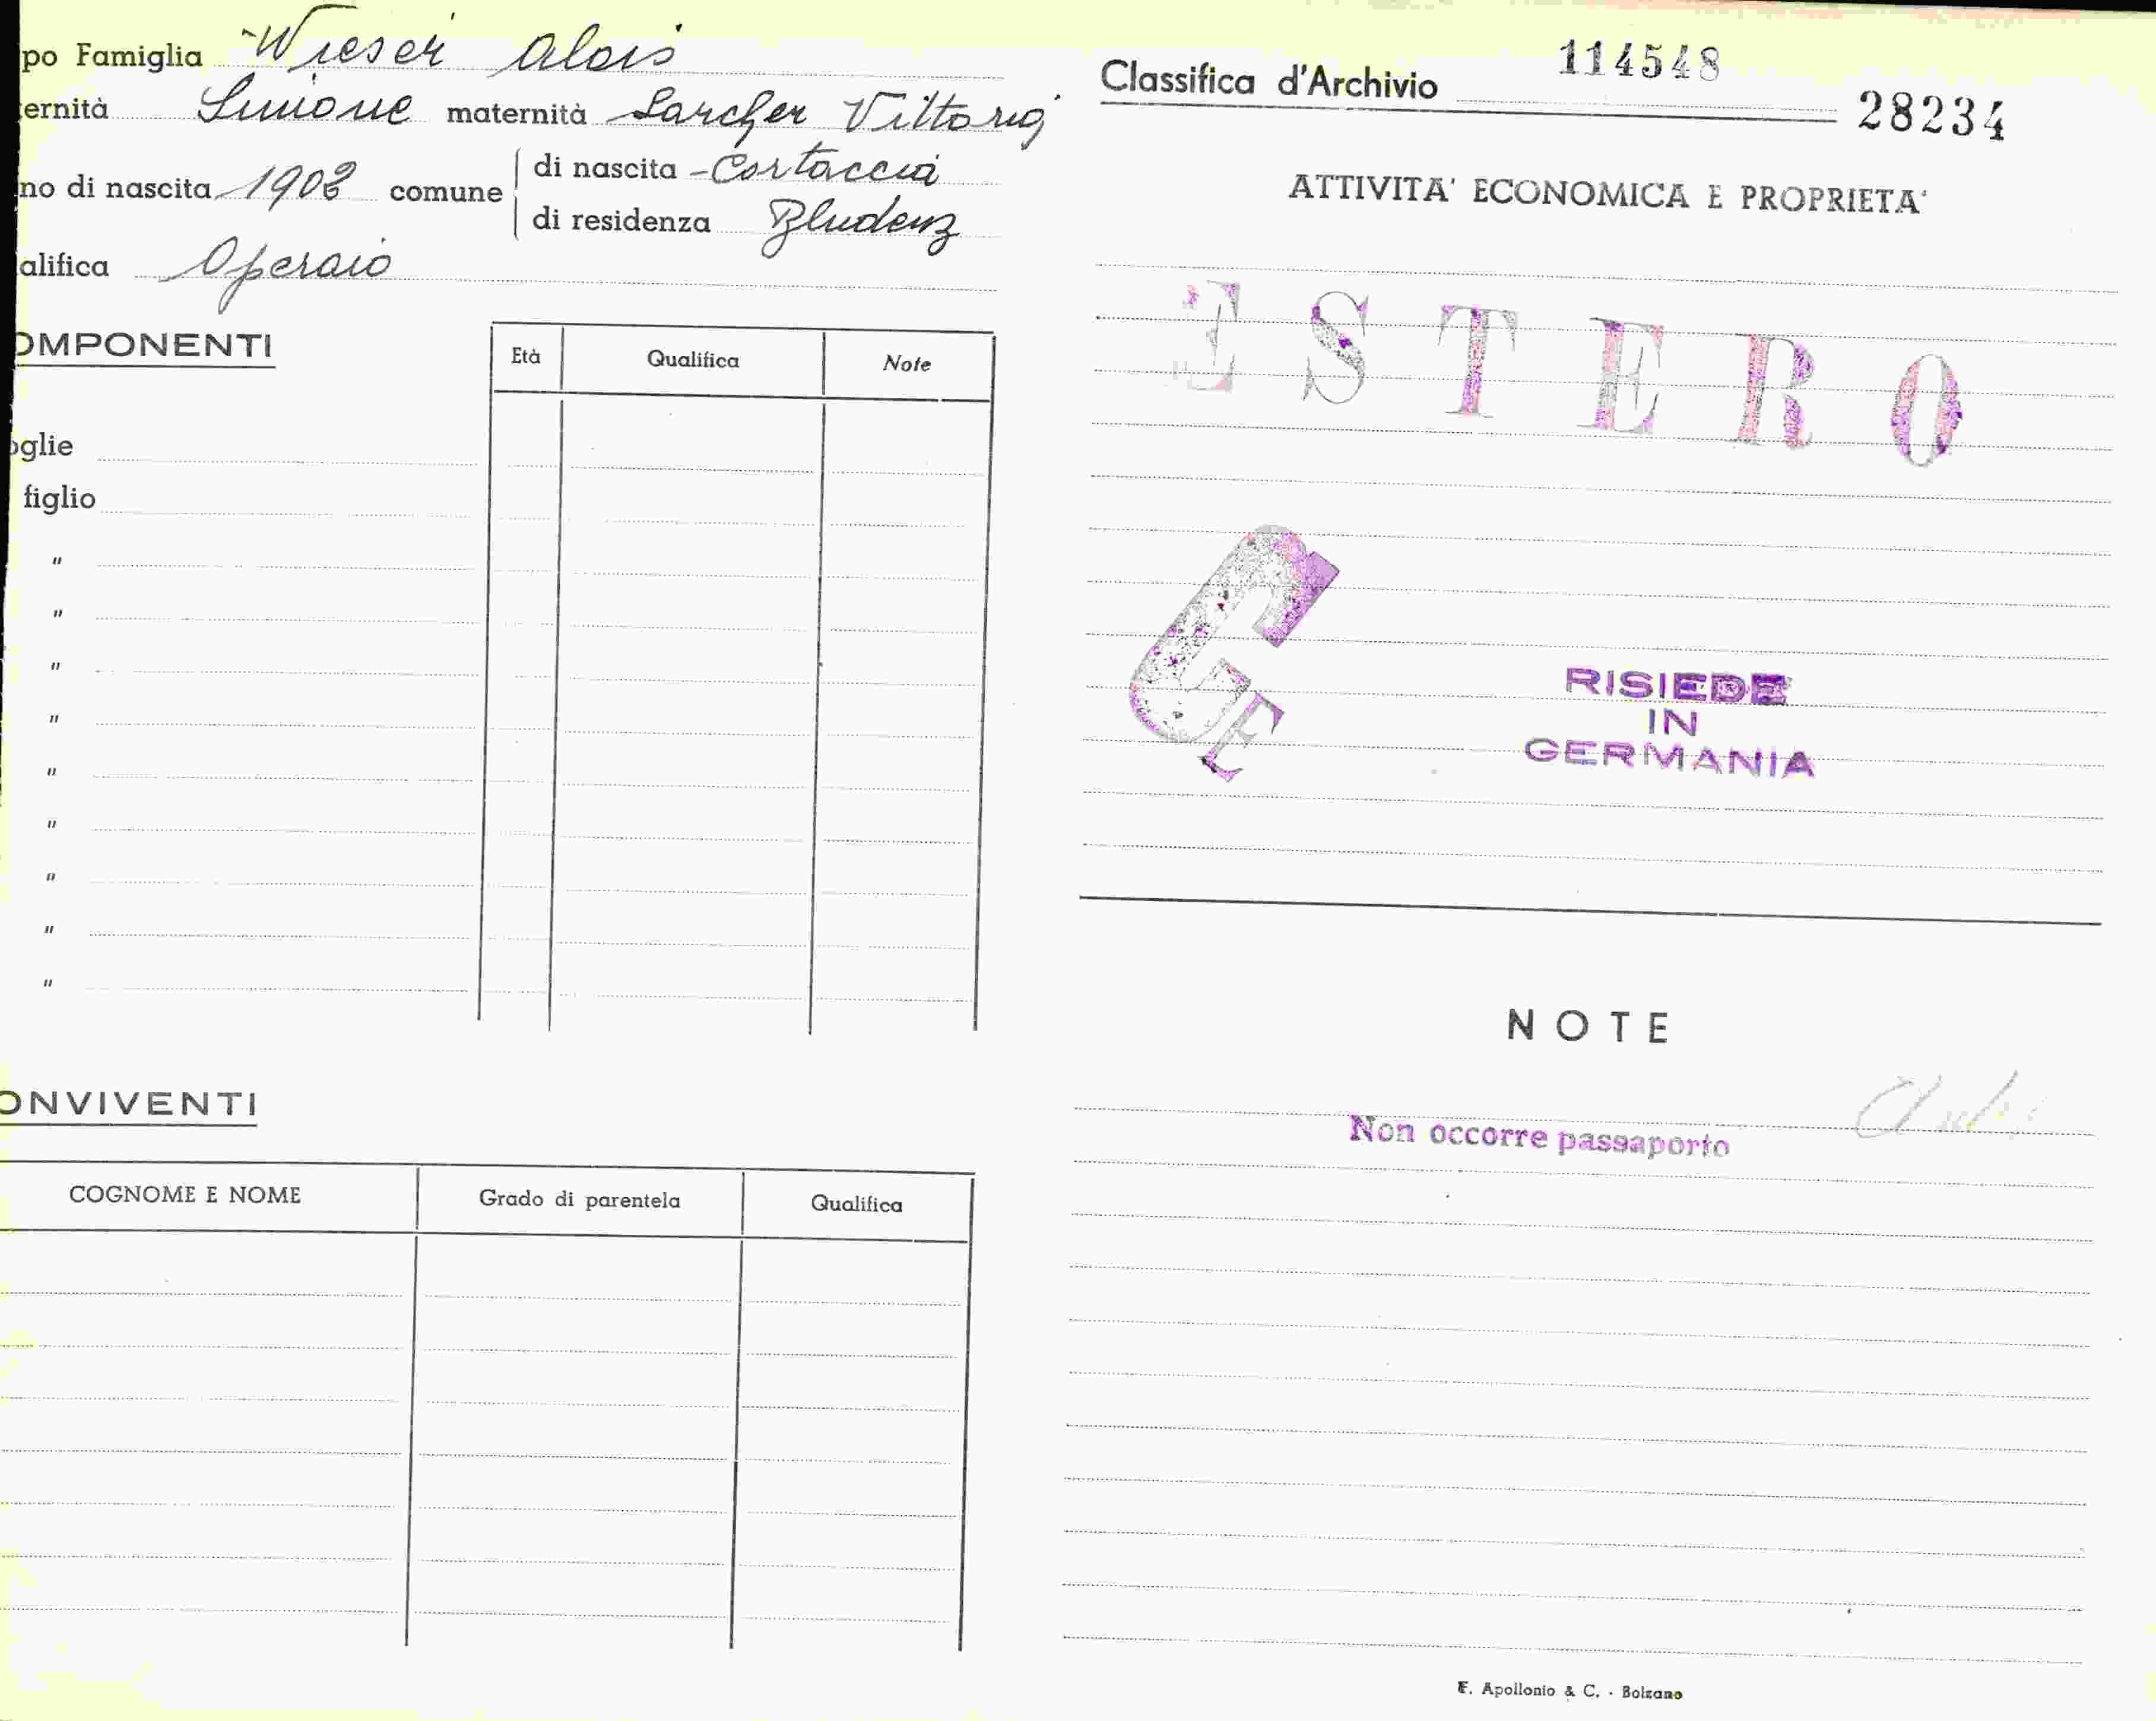 po Famiglia Wieser Alois
ernità Simone maternità Sarcher Vittoria
no di nascita 1902 comune di nascita Cortaccia
di residenza Bludenz
alifica Operaio
OMPONENTI
Età Qualifica Note
oglie
figlio
"
"
"
"
"
"
"
"
"
ONVIVENTI
COGNOME E NOME Grado di parentela Qualifica
Classifica d'Archivio 114548
28234
ATTIVITA' ECONOMICA E PROPRIETA'
ESTERO
G
E
RISIEDE
IN
GERMANIA
NOTE
Non occorre passaporto
F. Apollonio & C. - Bolzano